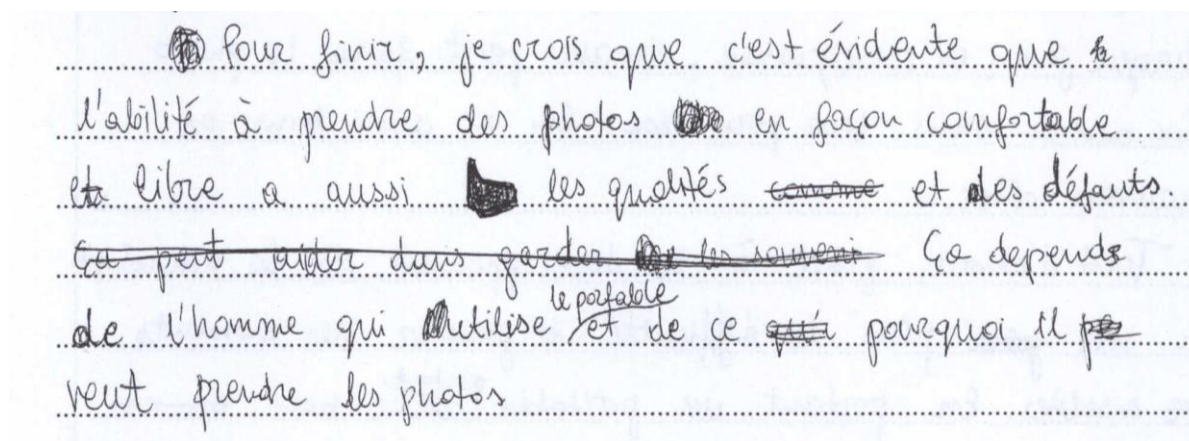 Pour finir, je crois que c'est évidente que
l'abilité à prendre des photos en façon comfortable
et libre a aussi les qualités comme et des défauts.
Ça peut aider dans garder les souveni Ça depends
de l'homme qui utilise le portable et de ce qui pourquoi il
veut prendre les photos